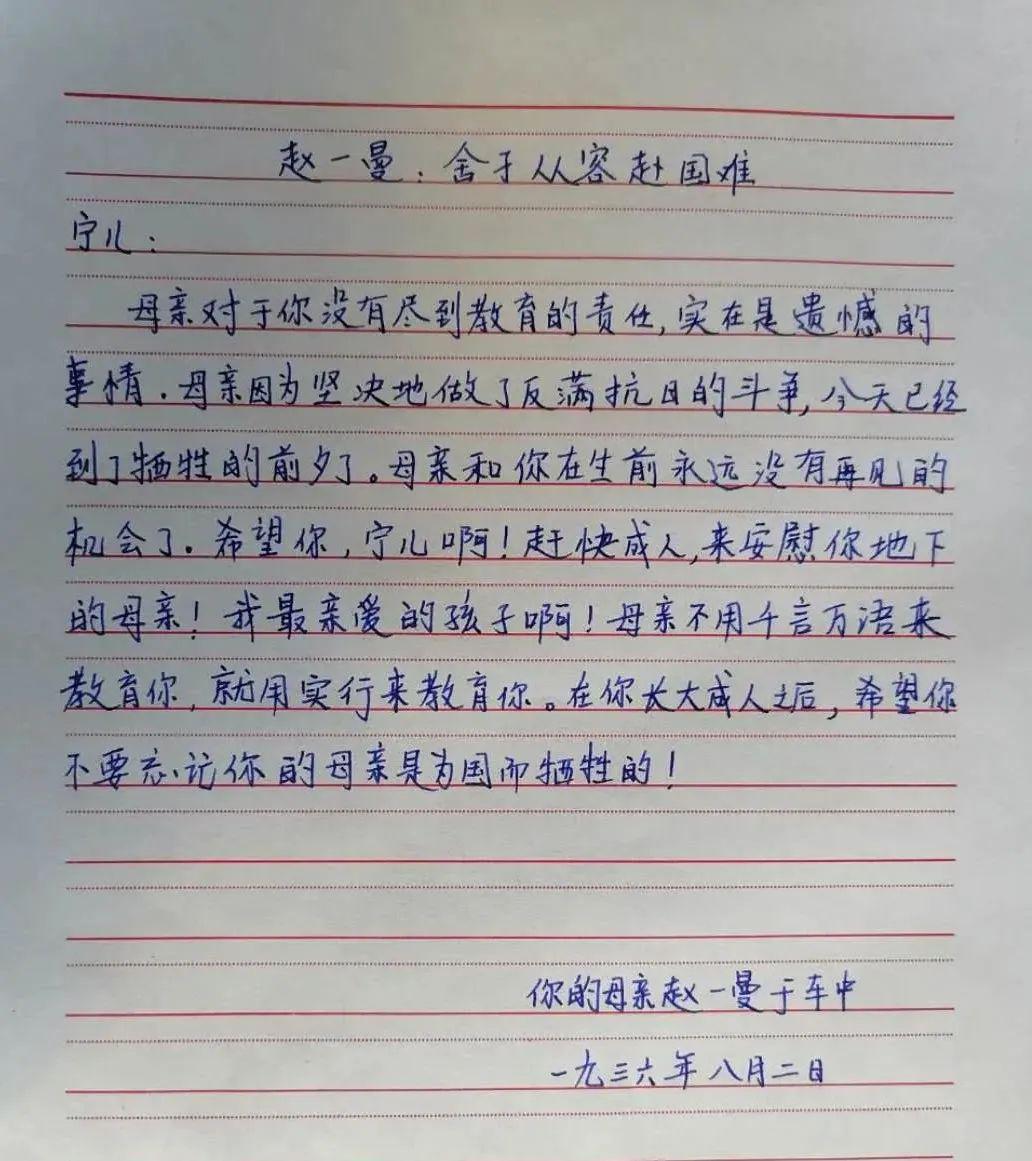 赵一曼：舍子从容赴国难
宁儿：
母亲对于你没有尽到教育的责任,实在是遗憾的
事情.母亲因为坚决地做了反满抗日的斗争,今天已经
到了牺牲的前夕了。母亲和你在生前永远没有再见的
机会了。希望你,宁儿啊!赶快成人,来安慰你地下
的母亲!我最亲爱的孩子啊!母亲不用千言万语来
教育你,就用实行来教育你。在你长大成人之后,希望你
不要忘记你的母亲是为国而牺牲的!
你的母亲赵一曼于车中
一九三六年八月二日